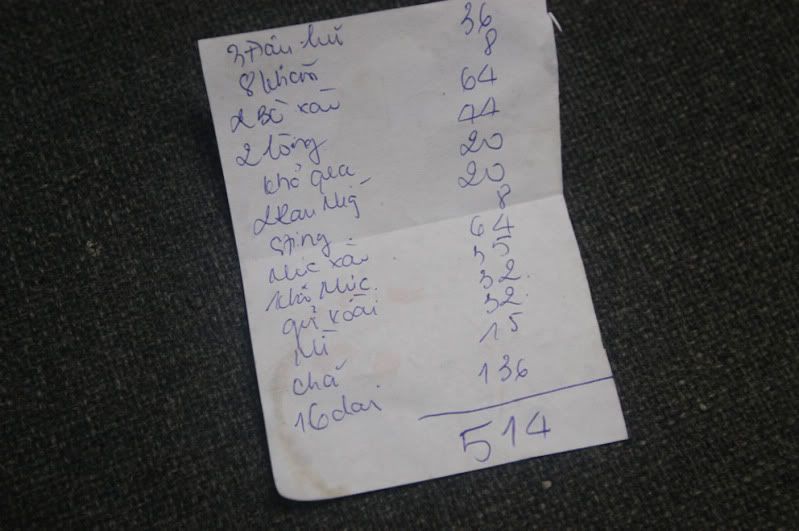 3 Đậu hũ 36
8 khăn 8
2 Bò xào 64
2 lòng 44
khổ qua 20
2 Rau 20
Sting 8
Mực xào 64
Khô Mực 35
gỏi xoài 32
Mì 32
chả 15
16 dai 136
514